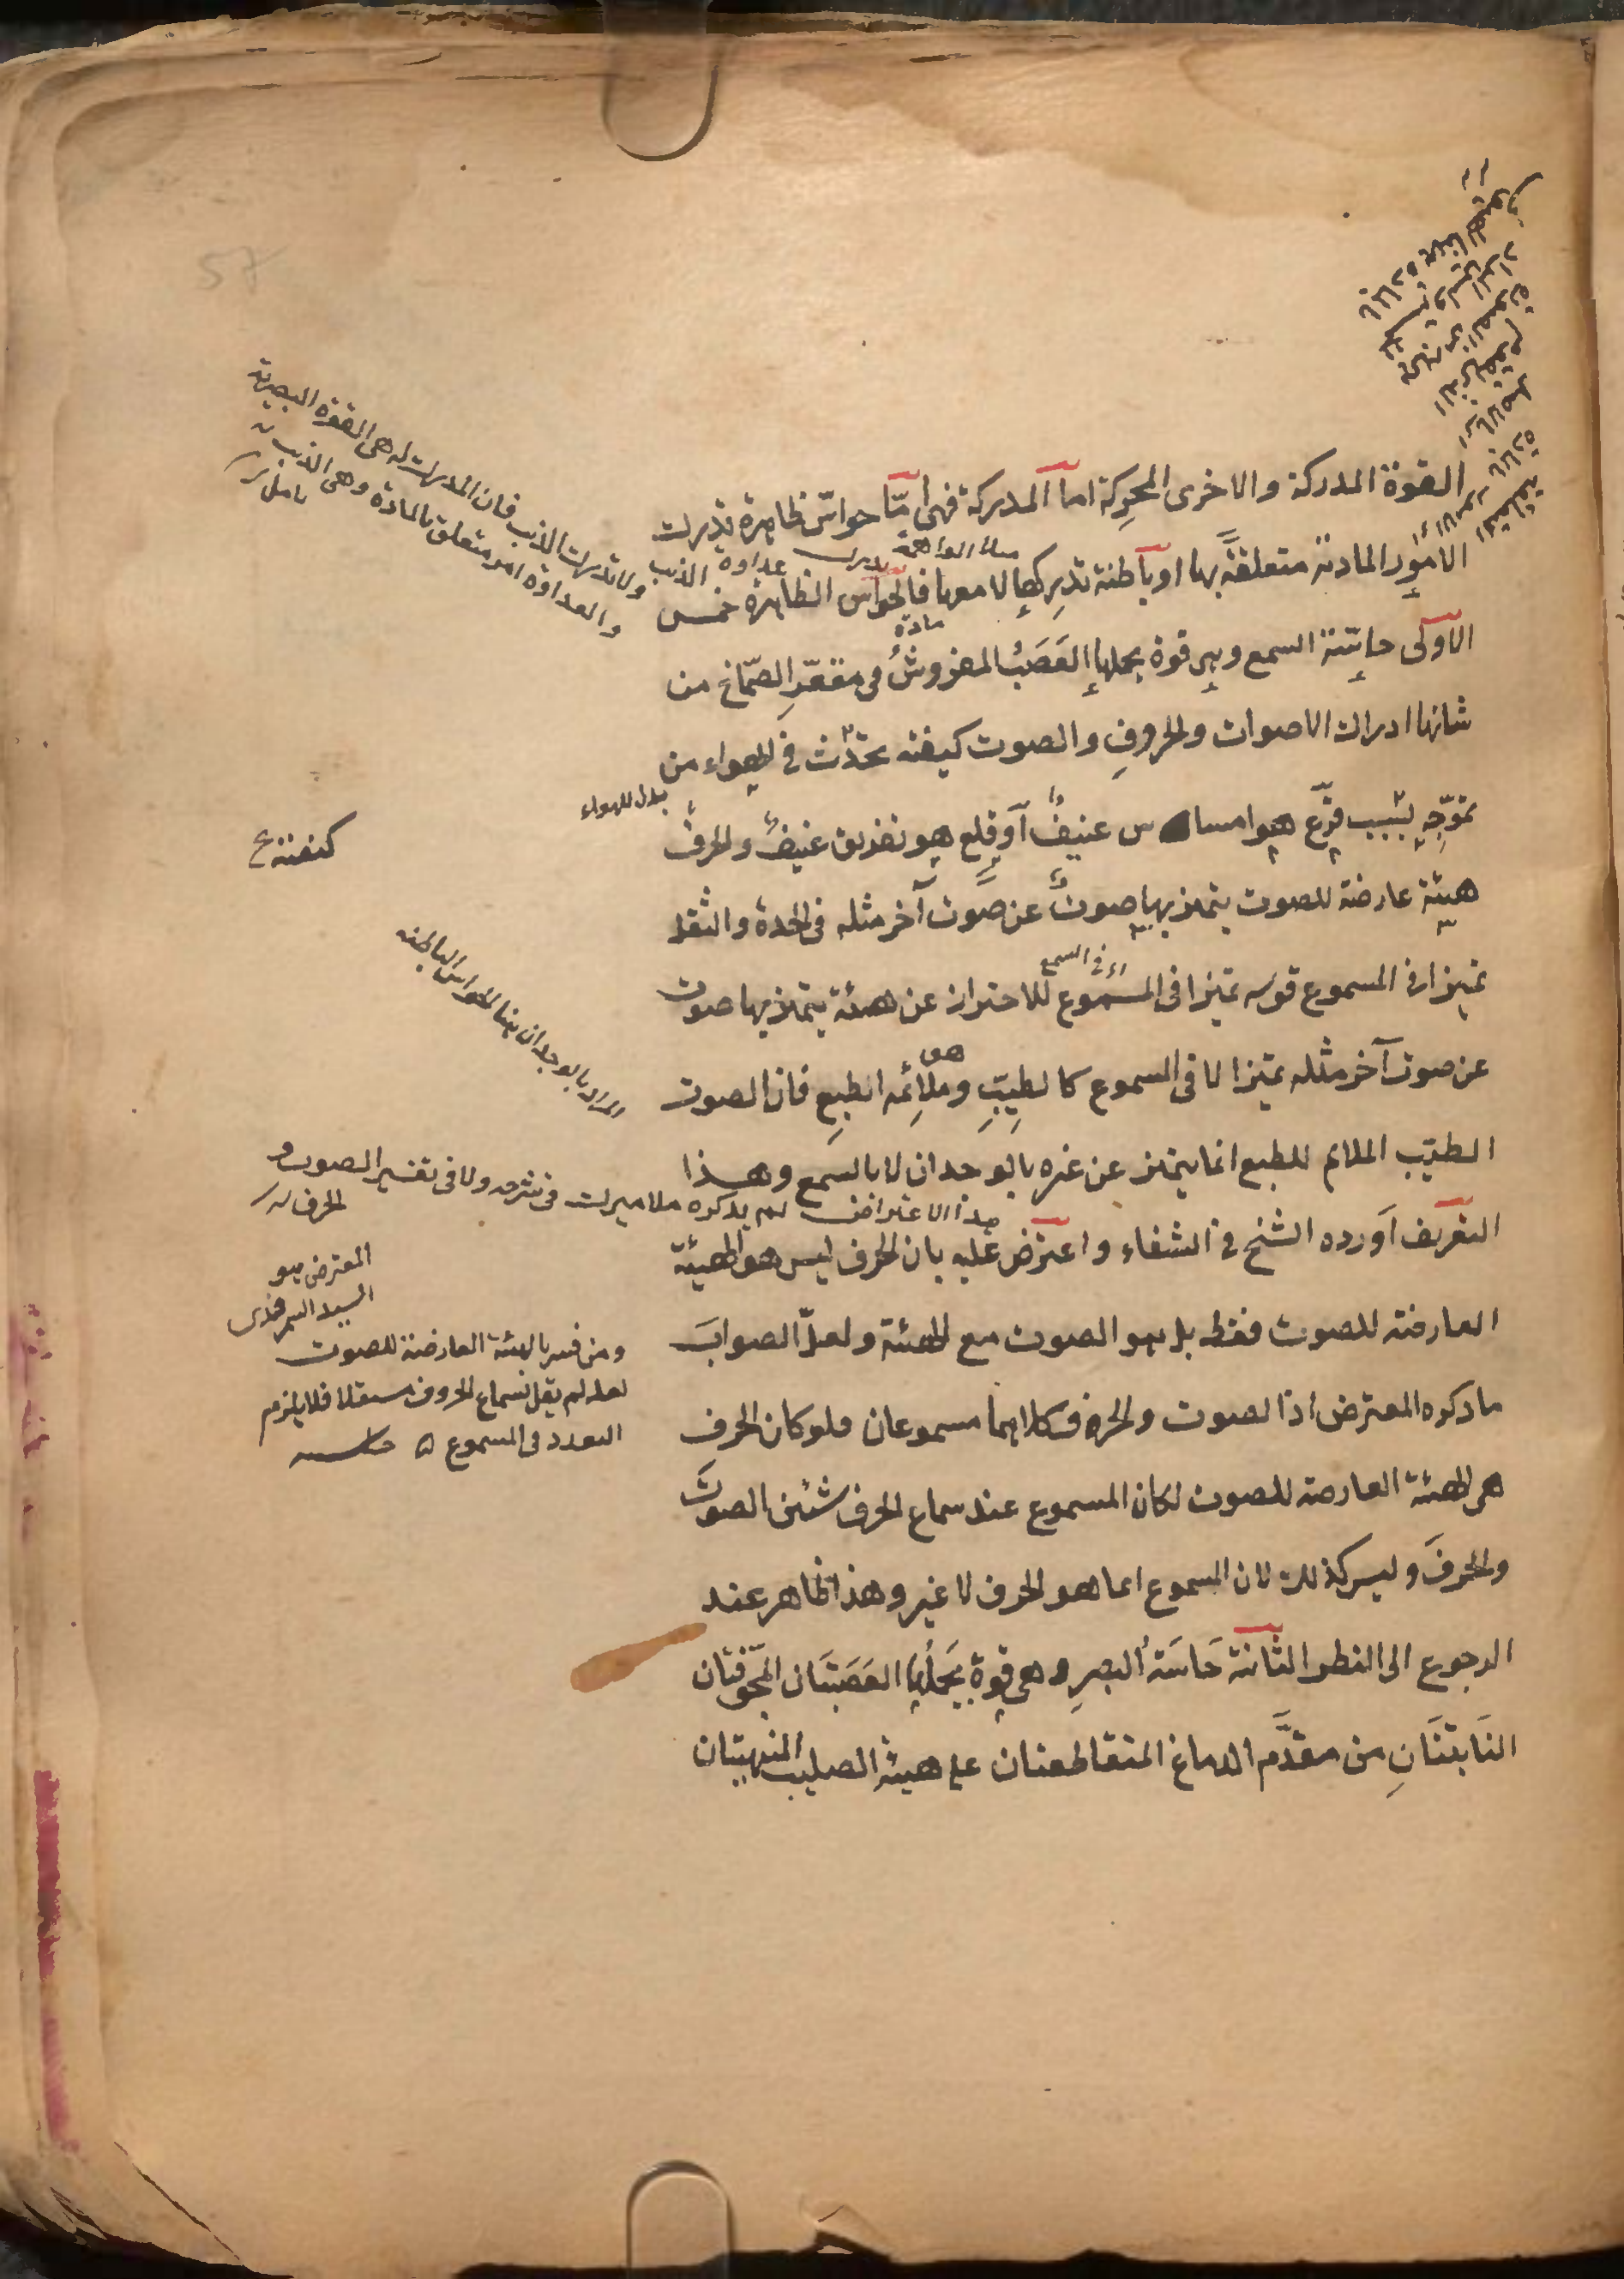 القوة المدركة والاخرى المحركة اما المدركة فهى امّا حواسّ ظاهرة تدرك
الامور المادية متعلقةً بها او باطنة تدركها لا معها فالحواس الظاهرة خمس
مادة
الاولى حاسّة السمع وهى قوة يحلها العَصَبُ المفروشُ فى مقعّرِ الصّماخ من
شانها ادراك الاصوات والحروفِ والصوت كيفية تحدّث فى الهواء من
بدل للهواء
تموّجِه بسَبب قرعٍ هو امساس عنيفٌ او قلعٍ هو تفريق عنيفٌ والحرفُ
هيئة عارضة للصوت يتميز بها صوتٌ عن صَوت آخر مثله فى الحدة والثقل
اى فى السمع
تميزا فى المسموع قوله تميزا فى المسموع للاحتراز عن هيئة يتميز بها صوت
هو
عن صوت آخر مثله تميزا لا فى المسموع كالطيبِ وملائمه الطبعِ فان الصوت
الطيّب الملائم للطبع انما يتميز عن غيره بالوجدان لا بالسمع وهذا
التعريف اَورده الشيخ فى الشفاء واعترض عليه بان الحرف ليس هو الهيئة
العارضة للصوت فقط بل هو الصوت مع الهيئة ولعلّ الصوابَ
ما ذكره المعترض اذ الصوت والحرف كلاهما مسموعان فلو كان الحرف
هى الهيئة العارضة للصوت لكان المسموع عند سماع الحرف شيئين الصوتَ
والحرفَ وليس كذلك لان المسموع انما هو الحرف لا غير وهذا ظاهر عند
الرجوع الى النظر الثانية حَاسَةُ البصرِ وهى قوة يَحلُّها العَصَبَتَان المجوّفتان
النَابتَتَانِ من مقدَّم الدماغ المتقاطعتان على هيئة الصليب المنتهيتان
عداوة الذئب ولا تدرك الذئب فان المدرك له هى القوة البصرية
والعداوة امر متعلق بالمادة وهى الذئب
تامل
كيفيته
المراد بالوجدان هنا الحواس الباطنه
هذا الاعتراض لم يذكره ملا ميرك فى شرحه ولا فى تفسير الصوت و
الحرف
المعترض هو
السيد السمرقندى
ومن فسر بالهيئة العارضة للصوت
لعله لم يقل بسماع الحروف مستقلا فلا يلزم
التعدد فى المسموع